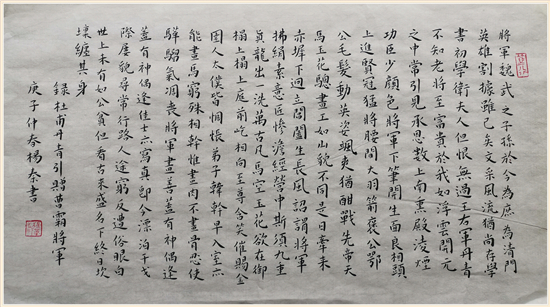 將軍魏武之子孫於今為庶為清門
英雄割據雖已矣文采風流猶尚存學
書初學衛夫人但恨無過王右軍丹青
不知老將至富貴於我如浮雲開元
之中常引見承恩數上南熏殿凌煙
功臣少顏色將軍下筆開生面良相頭
上進賢冠猛將腰間大羽箭褒公鄂
公毛髮動英姿颯爽猶酣戰先帝天
馬玉花驄畫工如山貌不同是日牽來
赤墀下迥立閶闔生長風詔謂將軍
拂絹素意匠慘澹經營中斯須九重
真龍出一洗萬古凡馬空玉花欲在御
榻上榻上庭前屹相向至尊含笑催賜金
圉人太僕皆惆悵弟子韓幹早入室亦
能畫馬窮殊相幹惟畫肉不畫骨忍使
驊騮氣凋喪將軍畫善蓋有神偶逢
蓋有神偶逢佳士亦寫真即今漂泊干戈
際屢貌尋常行路人途窮反遭俗眼白
世上未有如公貧但看古來盛名下終日坎
壈纏其身
錄杜甫丹青引贈曹霸將軍
庚子仲春楊秦書